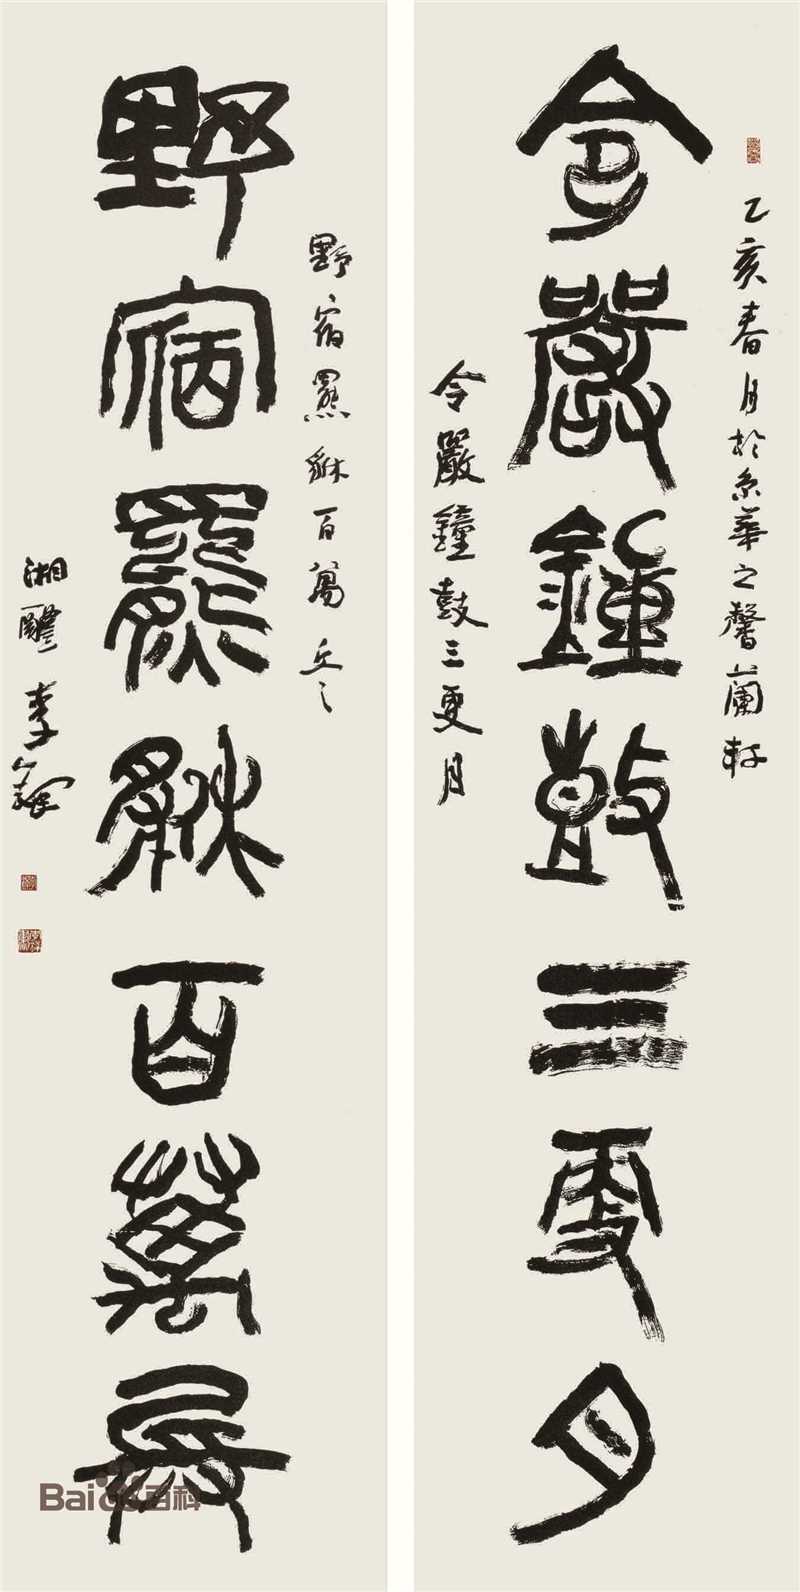 乙亥春月於京華之馨蘭軒
令嚴鍾鼓三更月
令嚴鐘鼓三更月
野宿羆貅百萬兵
野宿羆貅百萬兵
湘醴李鐸
Bai百科